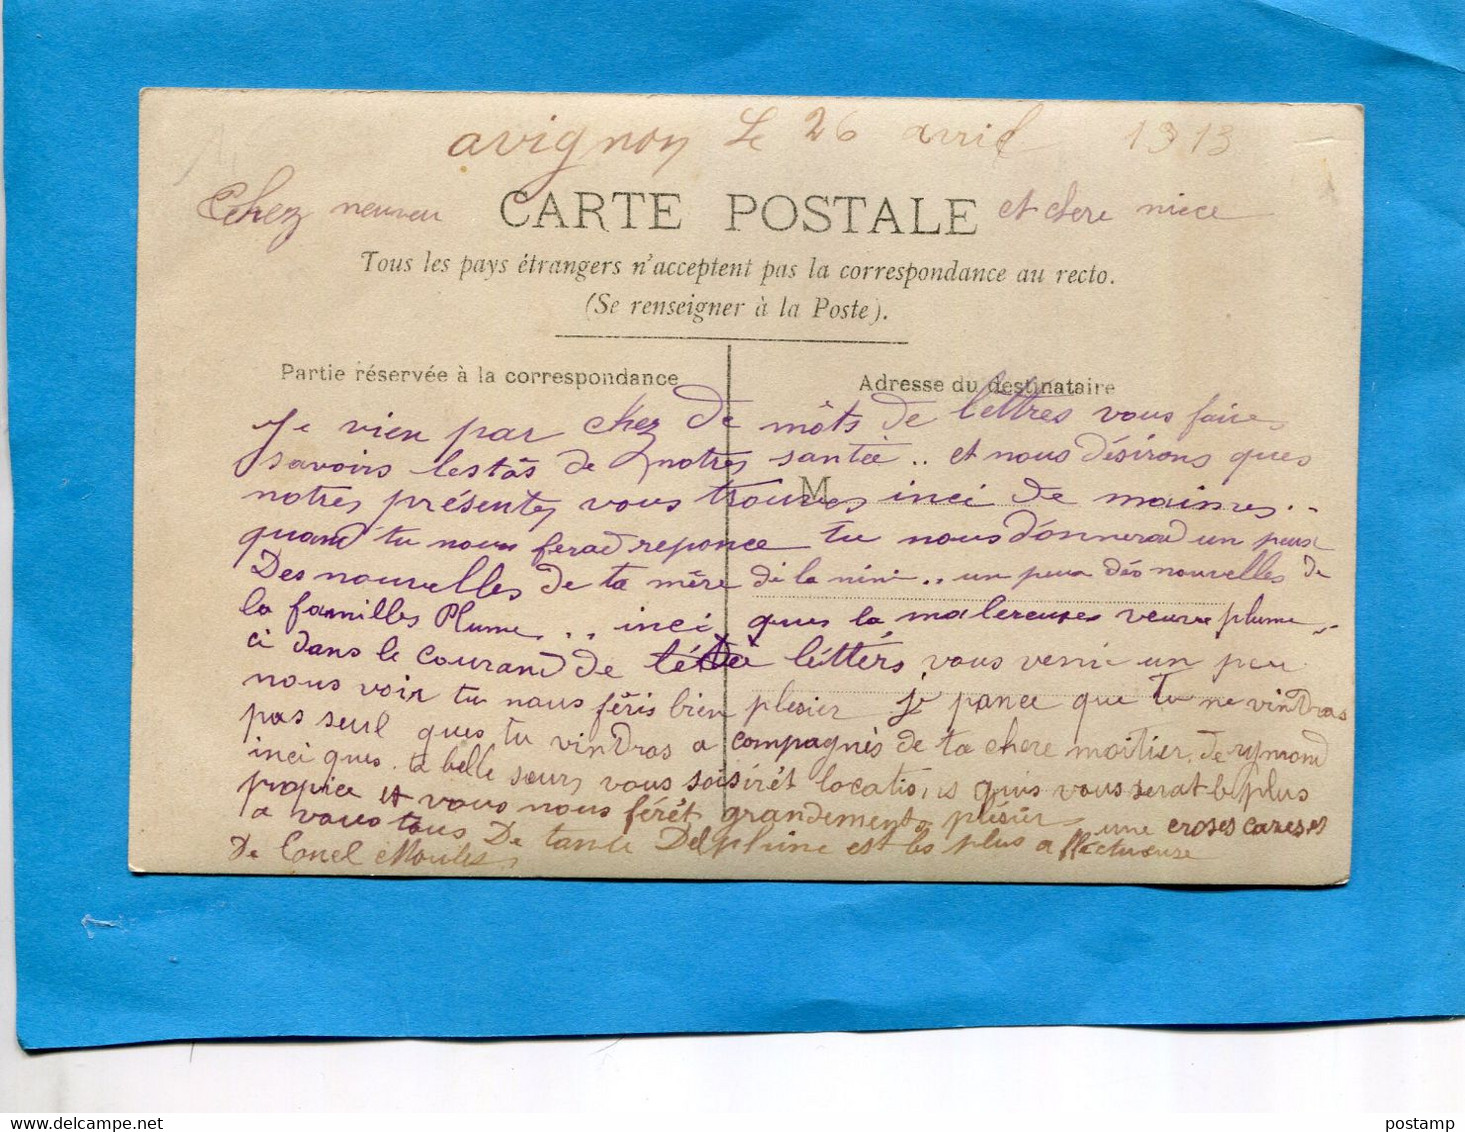 avignon Le 26 avril 1913
Chez neuveu CARTE POSTALE et chere niece
Tous les pays étrangers n'acceptent pas la correspondance au recto.
(Se renseigner à la Poste).
Partie réservée à la correspondance
Adresse du destinataire
Je vien par chez de môts de lettres vous faire
savoirs lestâs de notres santée .. et nous désirons ques
M
notres présentes vous trouves inci de maimes ..
quand tu nous ferad reponce tu nous donnerad un peux
Des nouvelles de ta mère de la nini .. un peux des nouvelles de
la familles Plume .. inci ques la malereuses veuve plume
ci dans le courand de létté léttérs vous venir un peu
nous voir tu nous féris bien plesier je pance que tu ne vindras
pas seul ques tu vindras a compagnés de ta chere moitier, de rymond
inci ques ta belle seurs vous soisirét locatis, is quis vous serat le plus
propice et vous nous férét grandements plésirs une croses careses
a vous tous De tante Delphine est les plus affectueuse
De Conel Moules
postamp